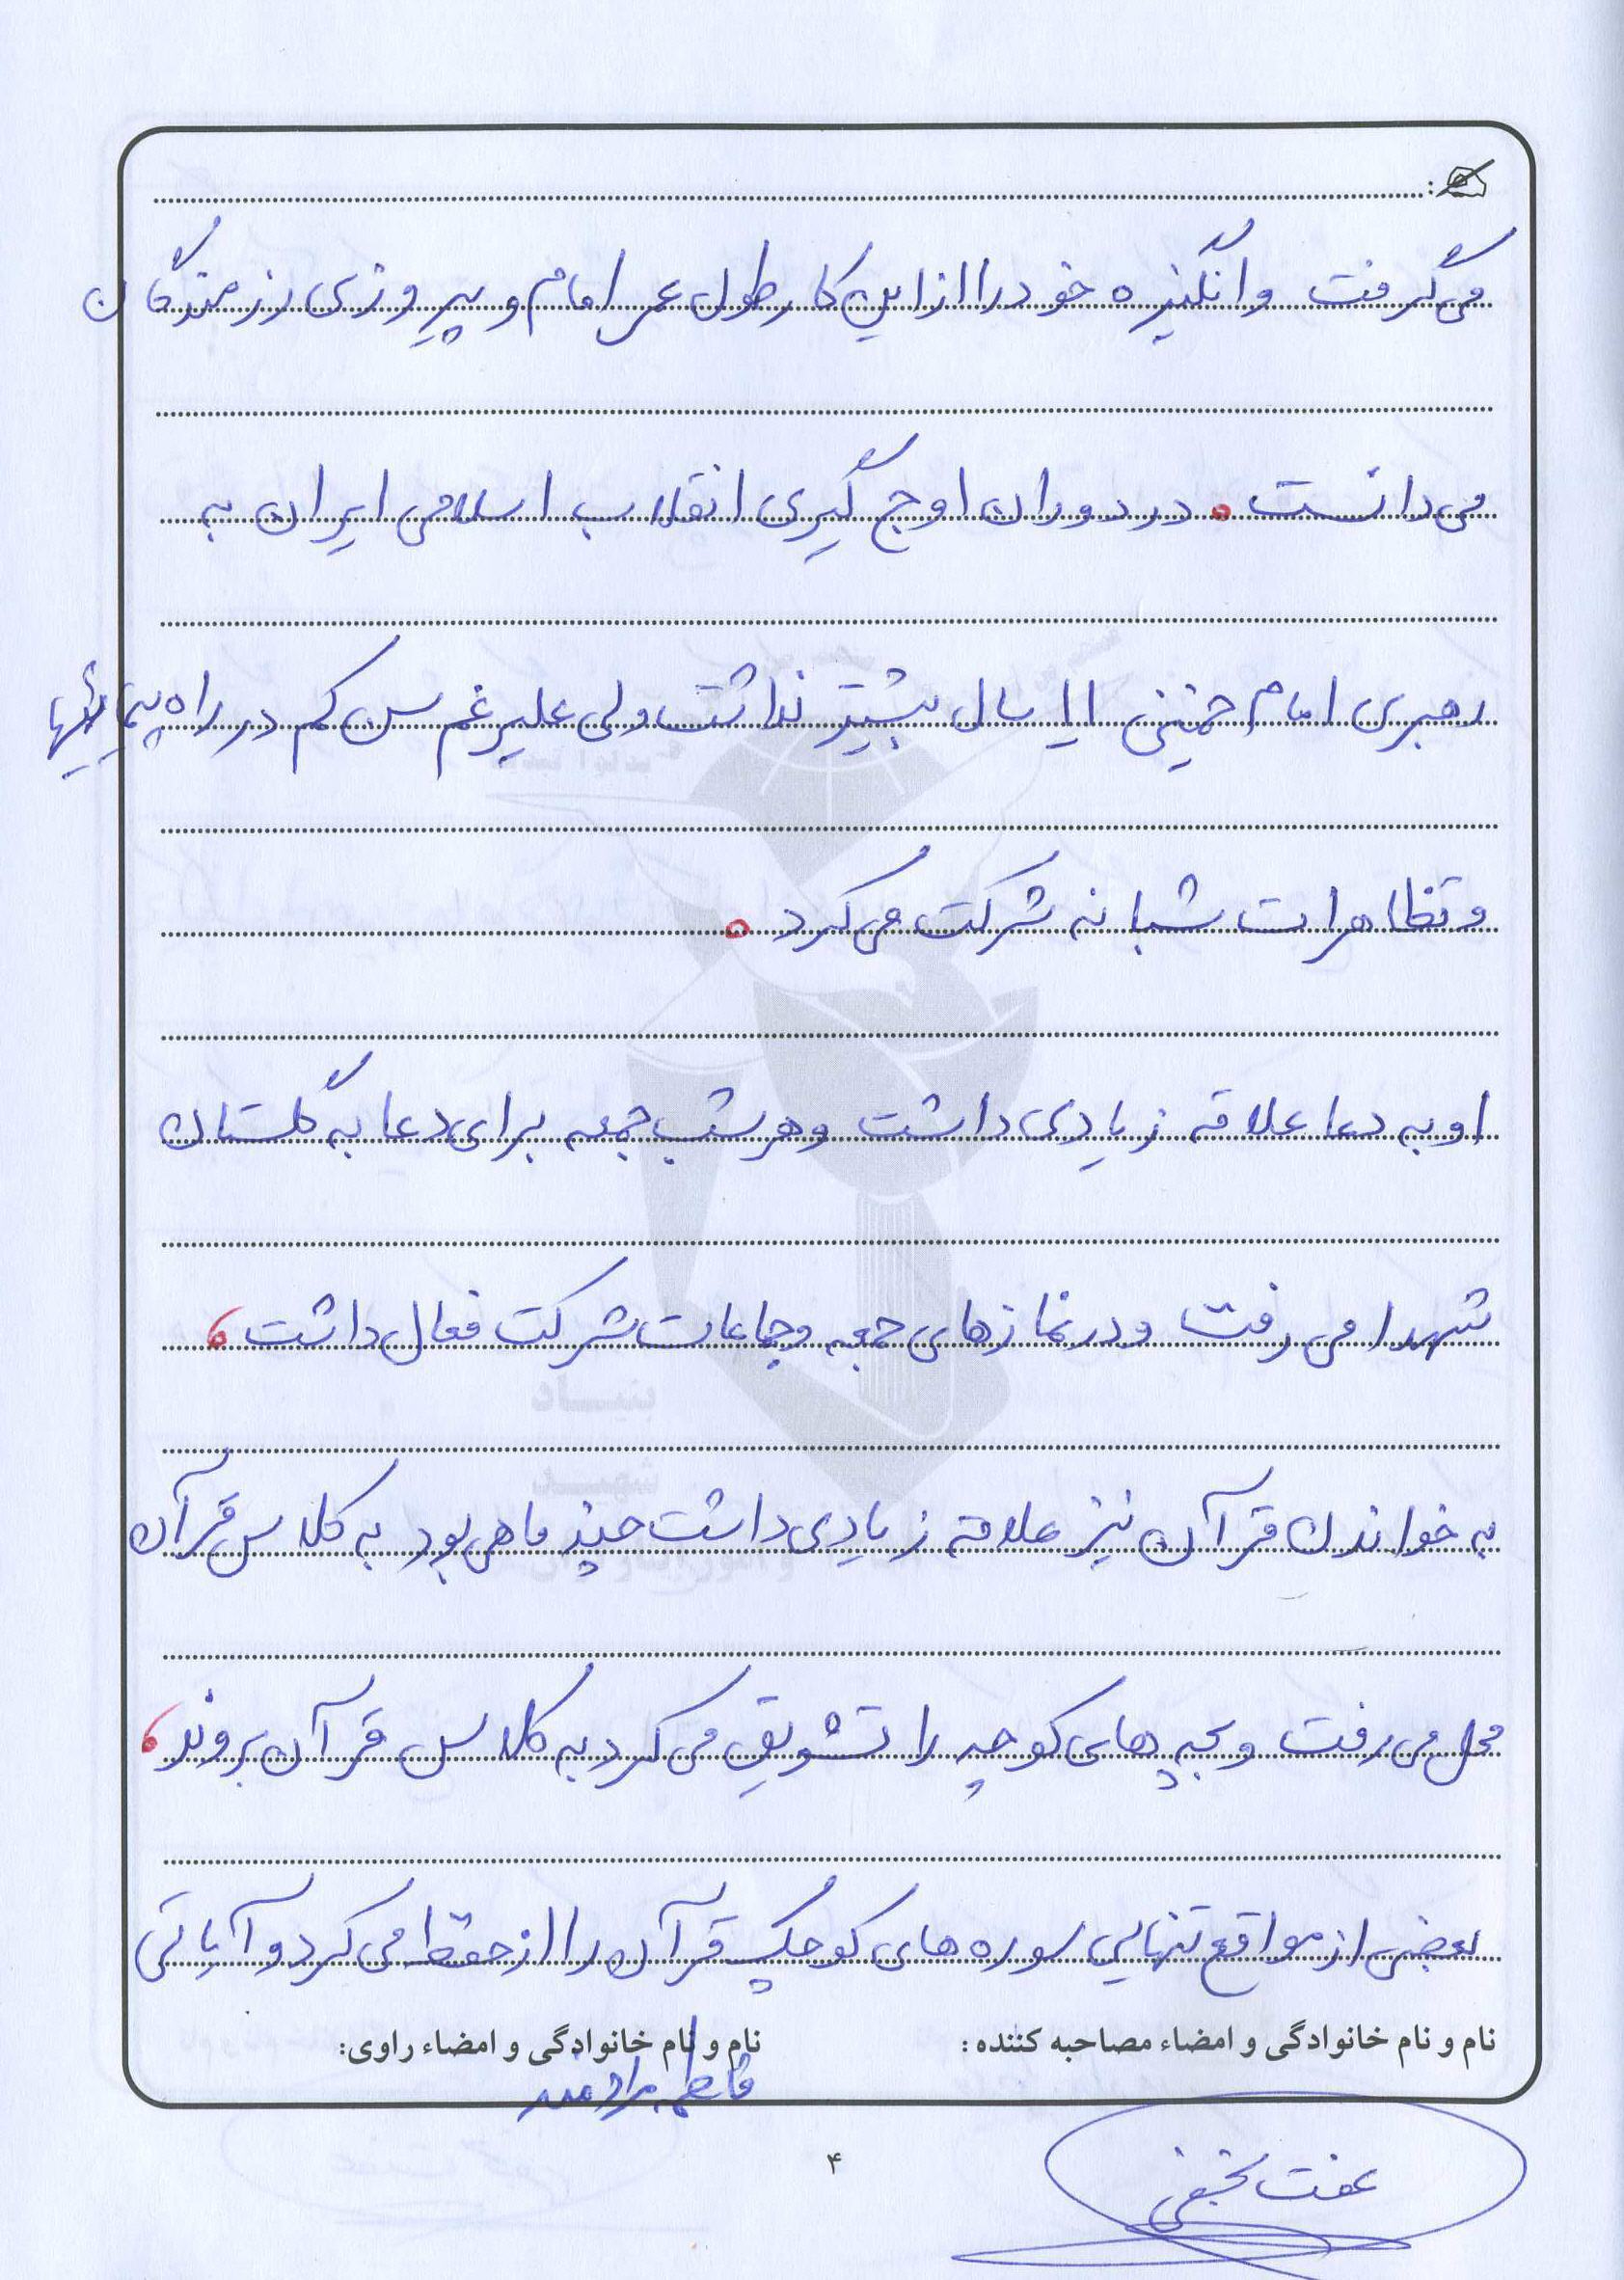 می‌گرفت و انگیزه خود را از این کار طول عمر امام و پیروزی رزمندگان
می‌دانست. در دوران اوج گیری انقلاب اسلامی ایران به
رهبری امام خمینی ۱۱ سال بیشتر نداشت ولی علیرغم سن کم در راه پیمائیها
و تظاهرات شبانه شرکت می‌کرد.
او به دعا علاقه زیادی داشت و هر شب جمعه برای دعا به گلستان
شهدا می رفت و در نمازهای جمعه و جماعات شرکت فعال داشت،
به خواندن قرآن نیز علاقه زیادی داشت چند ماهی بود به کلاس قرآن
محل می رفت و بچه های کوچه را تشویق می کرد به کلاس قرآن بروند،
بعضی از مواقع تنهایی سوره های کوچک قرآن را از حفظ می کرد و آیاتی
نام و نام خانوادگی و امضاء مصاحبه کننده:
نام و نام خانوادگی و امضاء راوی:
فاطمه
۴
عفت نجفی
بنیاد
شهید